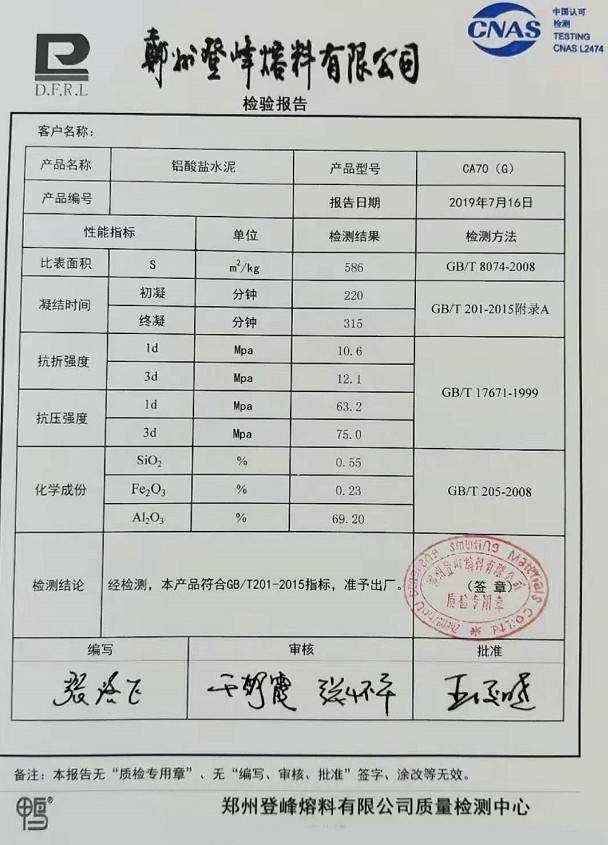 D.F.R.L
郑州登峰熔料有限公司
CNAS
中国认可
检测
TESTING
CNAS L2474
检验报告
客户名称：
产品名称 铝酸盐水泥 产品型号 CA70（G）
产品编号 报告日期 2019年7月16日
性能指标 单位 检测结果 检测方法
比表面积 S m²/kg 586 GB/T 8074-2008
凝结时间 初凝 分钟 220 GB/T 201-2015附录A
终凝 分钟 315
抗折强度 1d Mpa 10.6 GB/T 17671-1999
3d Mpa 12.1
抗压强度 1d Mpa 63.2
3d Mpa 75.0
化学成份 SiO₂ % 0.55 GB/T 205-2008
Fe₂O₃ % 0.23
Al₂O₃ % 69.20
检测结论 经检测，本产品符合GB/T201-2015指标，准予出厂。 （签 章）
质检专用章
编写 审核 批准
备注：本报告无“质检专用章”、无“编写、审核、批准”签字、涂改等无效。
郑州登峰熔料有限公司质量检测中心